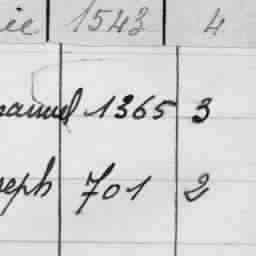 ie 1543 4
anuel 1365 3
seph 701 2